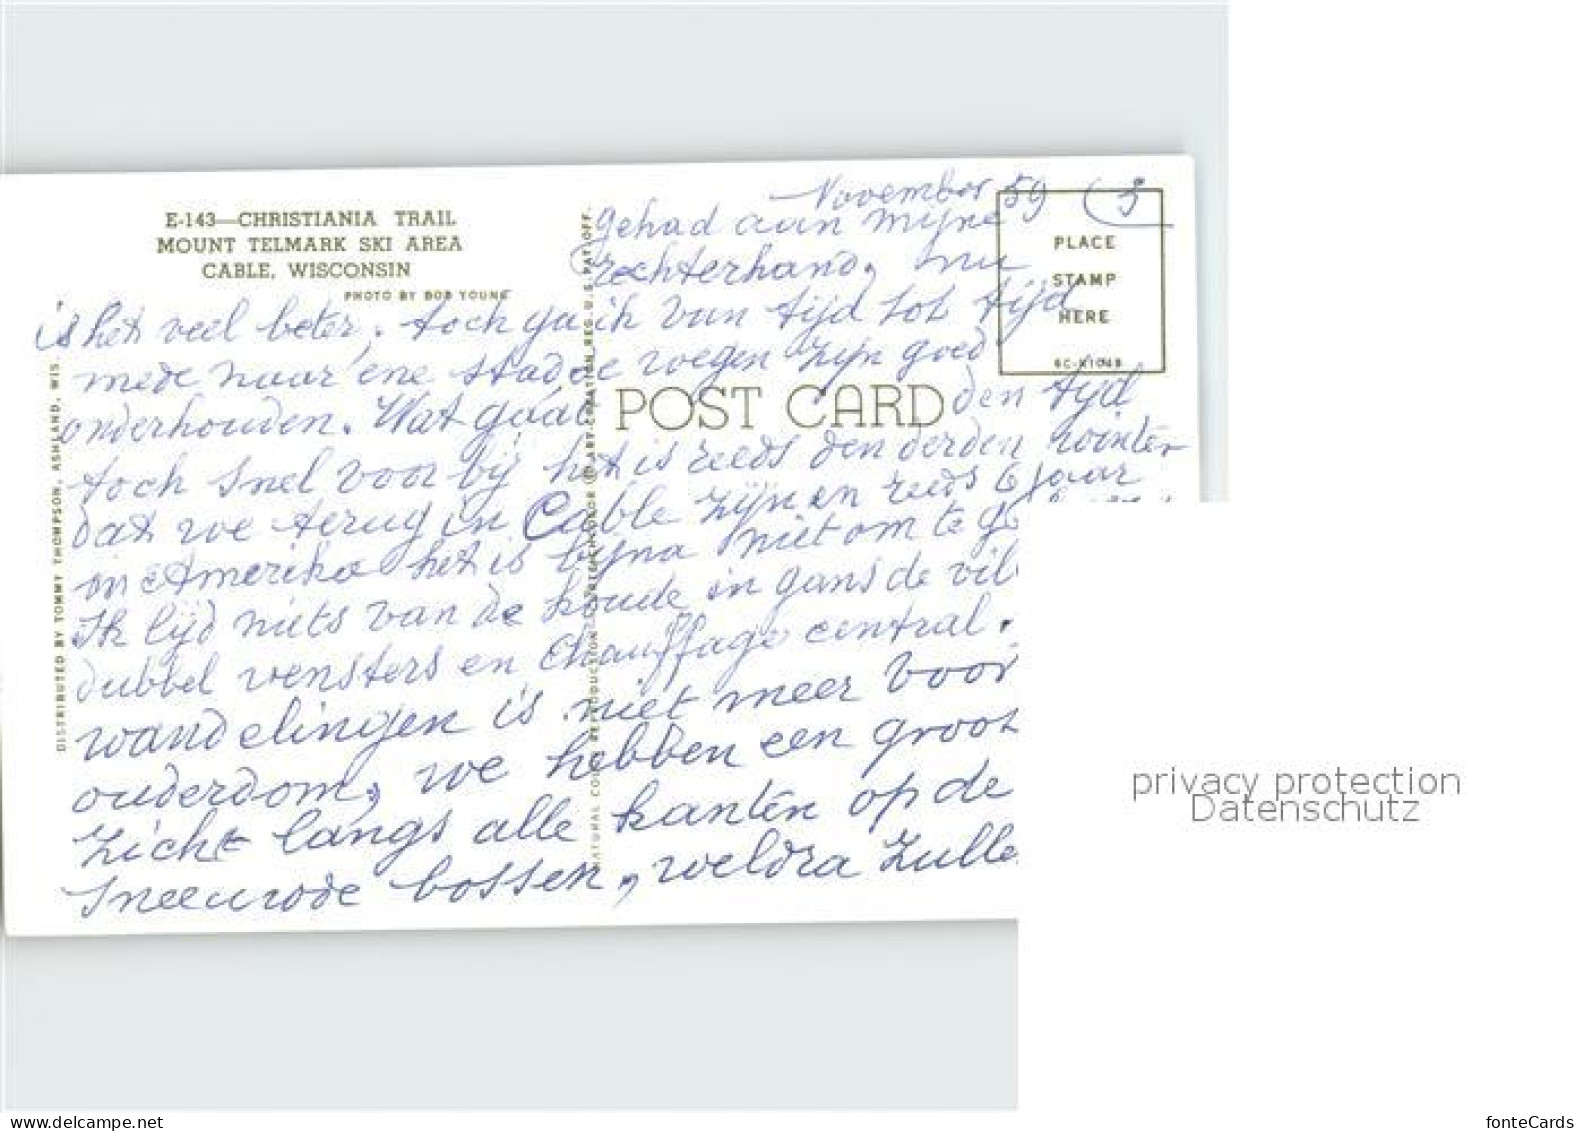 November 59 (3
E-143—CHRISTIANIA TRAIL
MOUNT TELMARK SKI AREA
CABLE, WISCONSIN
PHOTO BY BOB YOUNG
PLACE
STAMP
HERE
6C-K1048
POST CARD
DISTRIBUTED BY TOMMY THOMPSON, ASHLAND, WIS.
NATURAL COLOR REPRODUCTION REG. U.S. PAT. OFF.
gehad aan mijne
rechterhand, nu
is het veel beter. toch ga ik van tijd tot tijd
mede naar ene stad de wegen zijn goed
onderhouden. Wat gaat den tijd
toch snel voor bij het is reeds den derden winter
dat we terug in Cable zijn en reeds 6 Jaar
in Amerika het is bijna niet om te
Ik lijd niets van de koude in gans de vil
dubbel vensters en chauffage central.
wandelingen is niet meer voor
ouderdom, we hebben een groot
zicht langs alle kanten op de
sneeuwde bossen, weldra zulle
privacy protection
Datenschutz
www.delcampe.net
fonteCards